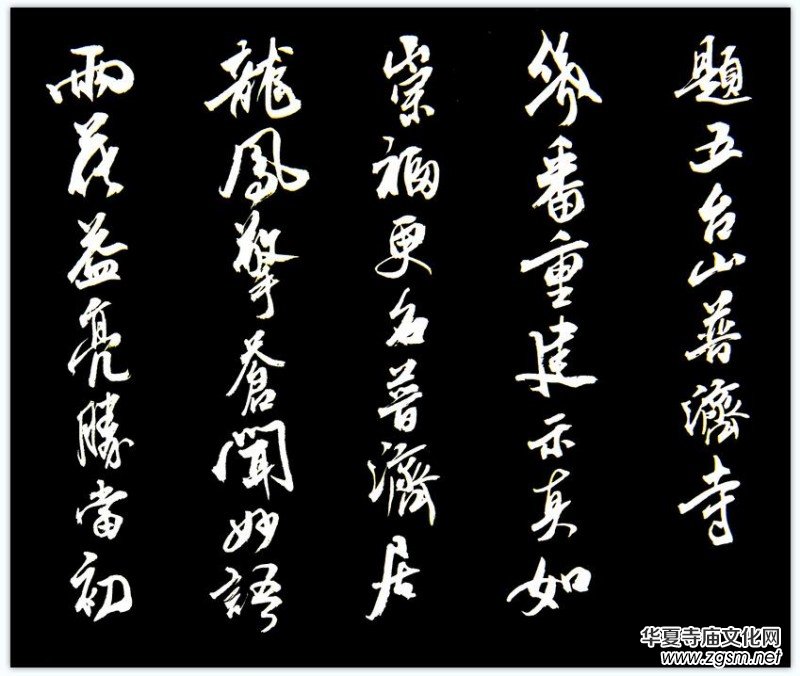 題五台山普濟寺
幾番重建示真如
崇福更名普濟居
龍鳳擎蒼聞妙語
雨花益亮勝當初
华夏寺庙文化网
www.zgsm.net